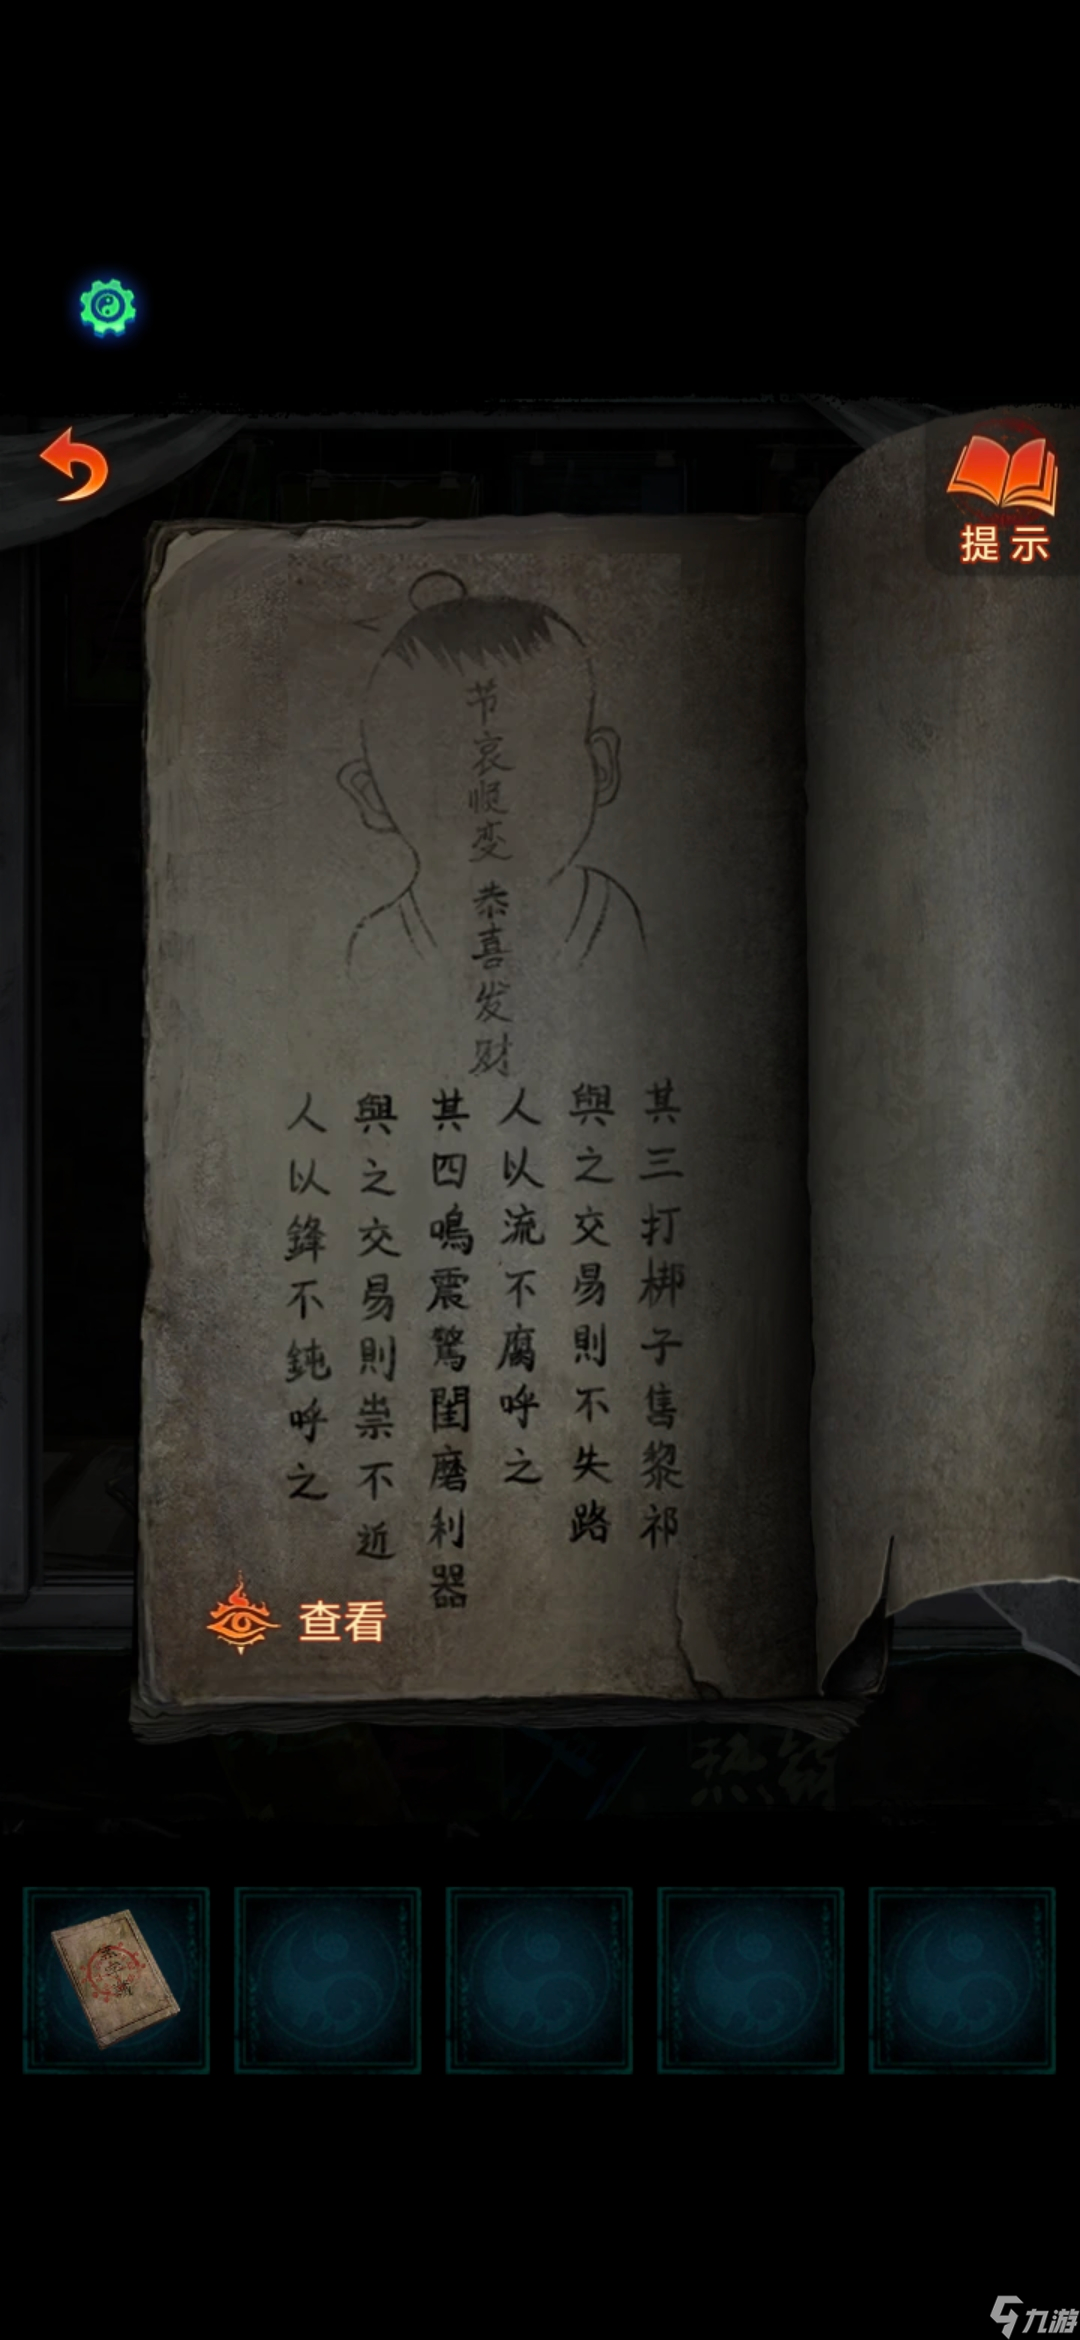 提示
节哀顺变 恭喜发财
其三打梆子售黎祁
與之交易則不失路
人以流不腐呼之
其四鳴震驚閨磨利器
與之交易則祟不近
人以鋒不鈍呼之
查看
九游